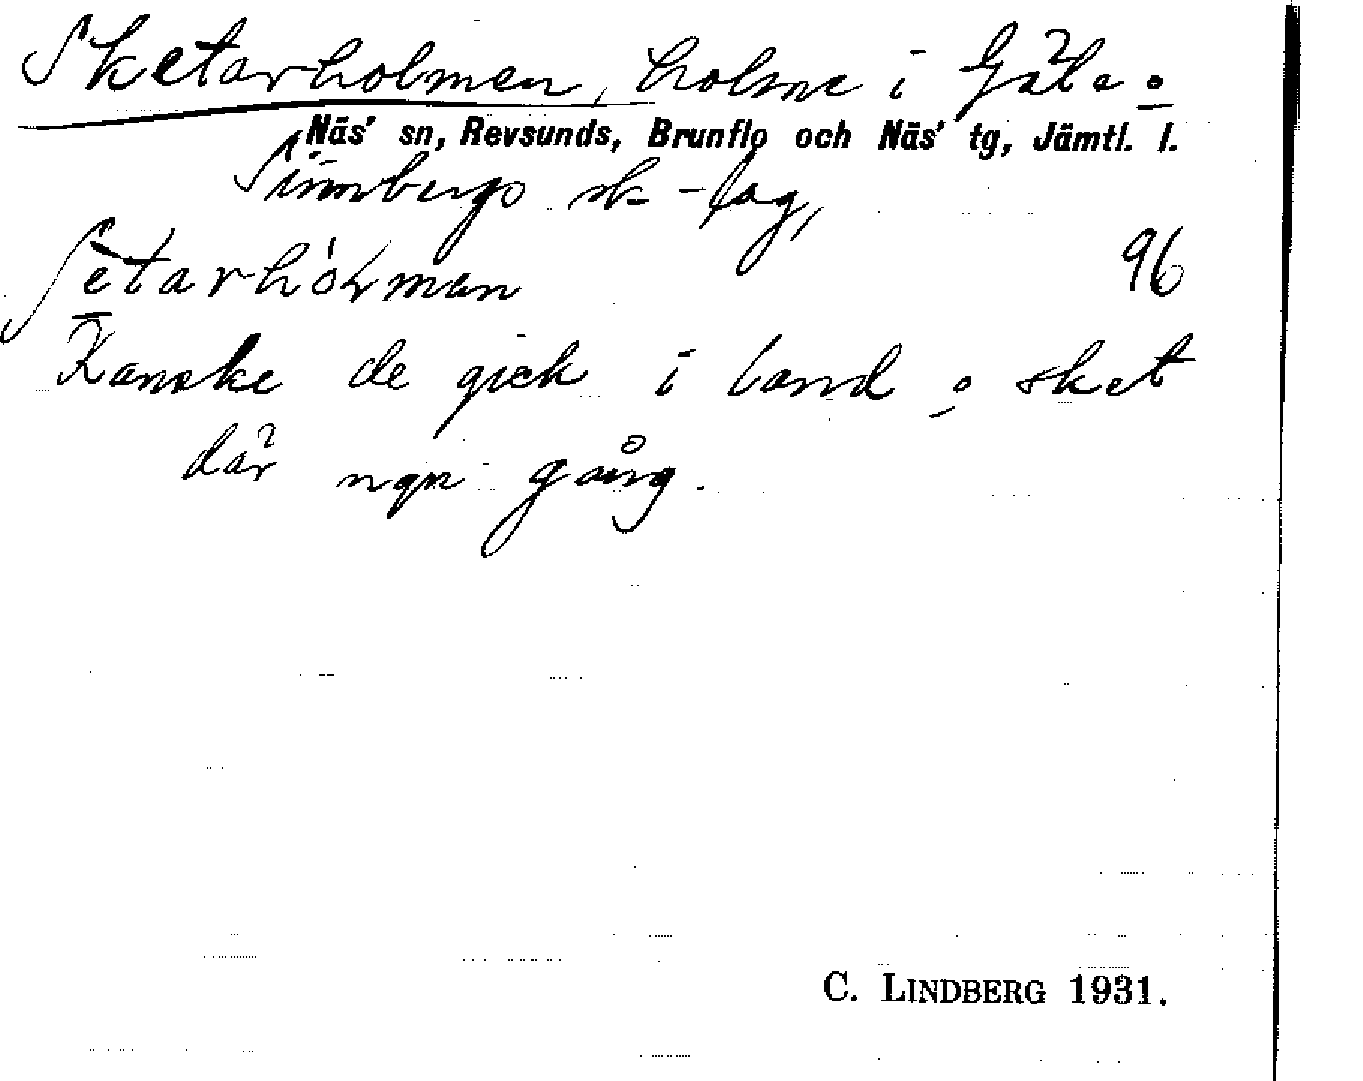 Sketarholmen, holme i
Näs' sn, Revsunds, Brunflo och Näs' tg, Jämtl. l.
sk-lag,
96
Kanske de gick i land o sket
där ngn gång.
C. LINDBERG 1931.